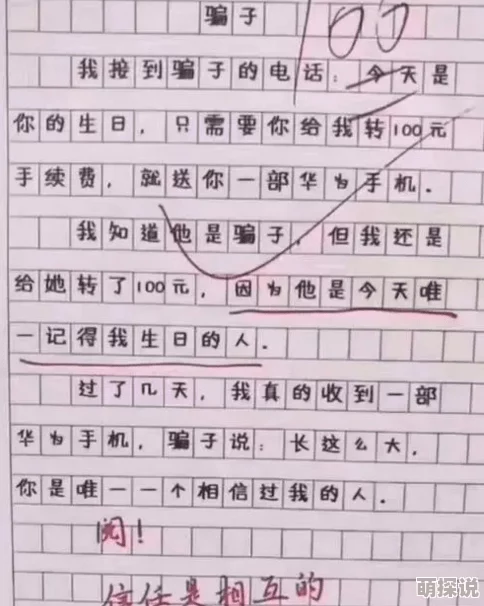 骗子 100
我接到骗子的电话：今天是
你的生日，只需要你给我转100元
手续费，就送你一部华为手机.
我知道他是骗子，但我还是
给她转了100元，因为他是今天唯
一记得我生日的人.
过了几天，我真的收到一部
华为手机，骗子说：长这么大，
你是唯一一个相信过我的人.
阅！
信任是相互的
萌探说